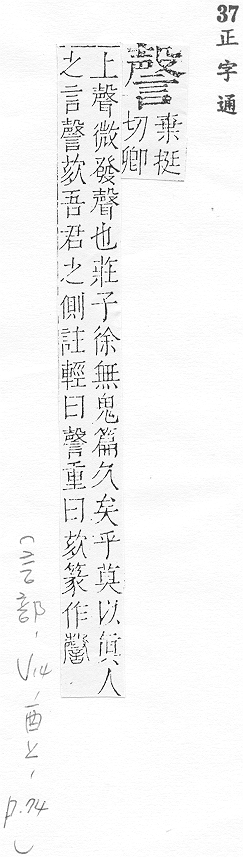 37正字通
謦
棄挺
切卿
上聲微發聲也莊子徐無鬼篇久矣乎莫以眞人
之言謦欬吾君之側註輕曰謦重曰欬篆作
(言部,V14,酉上,p.74)